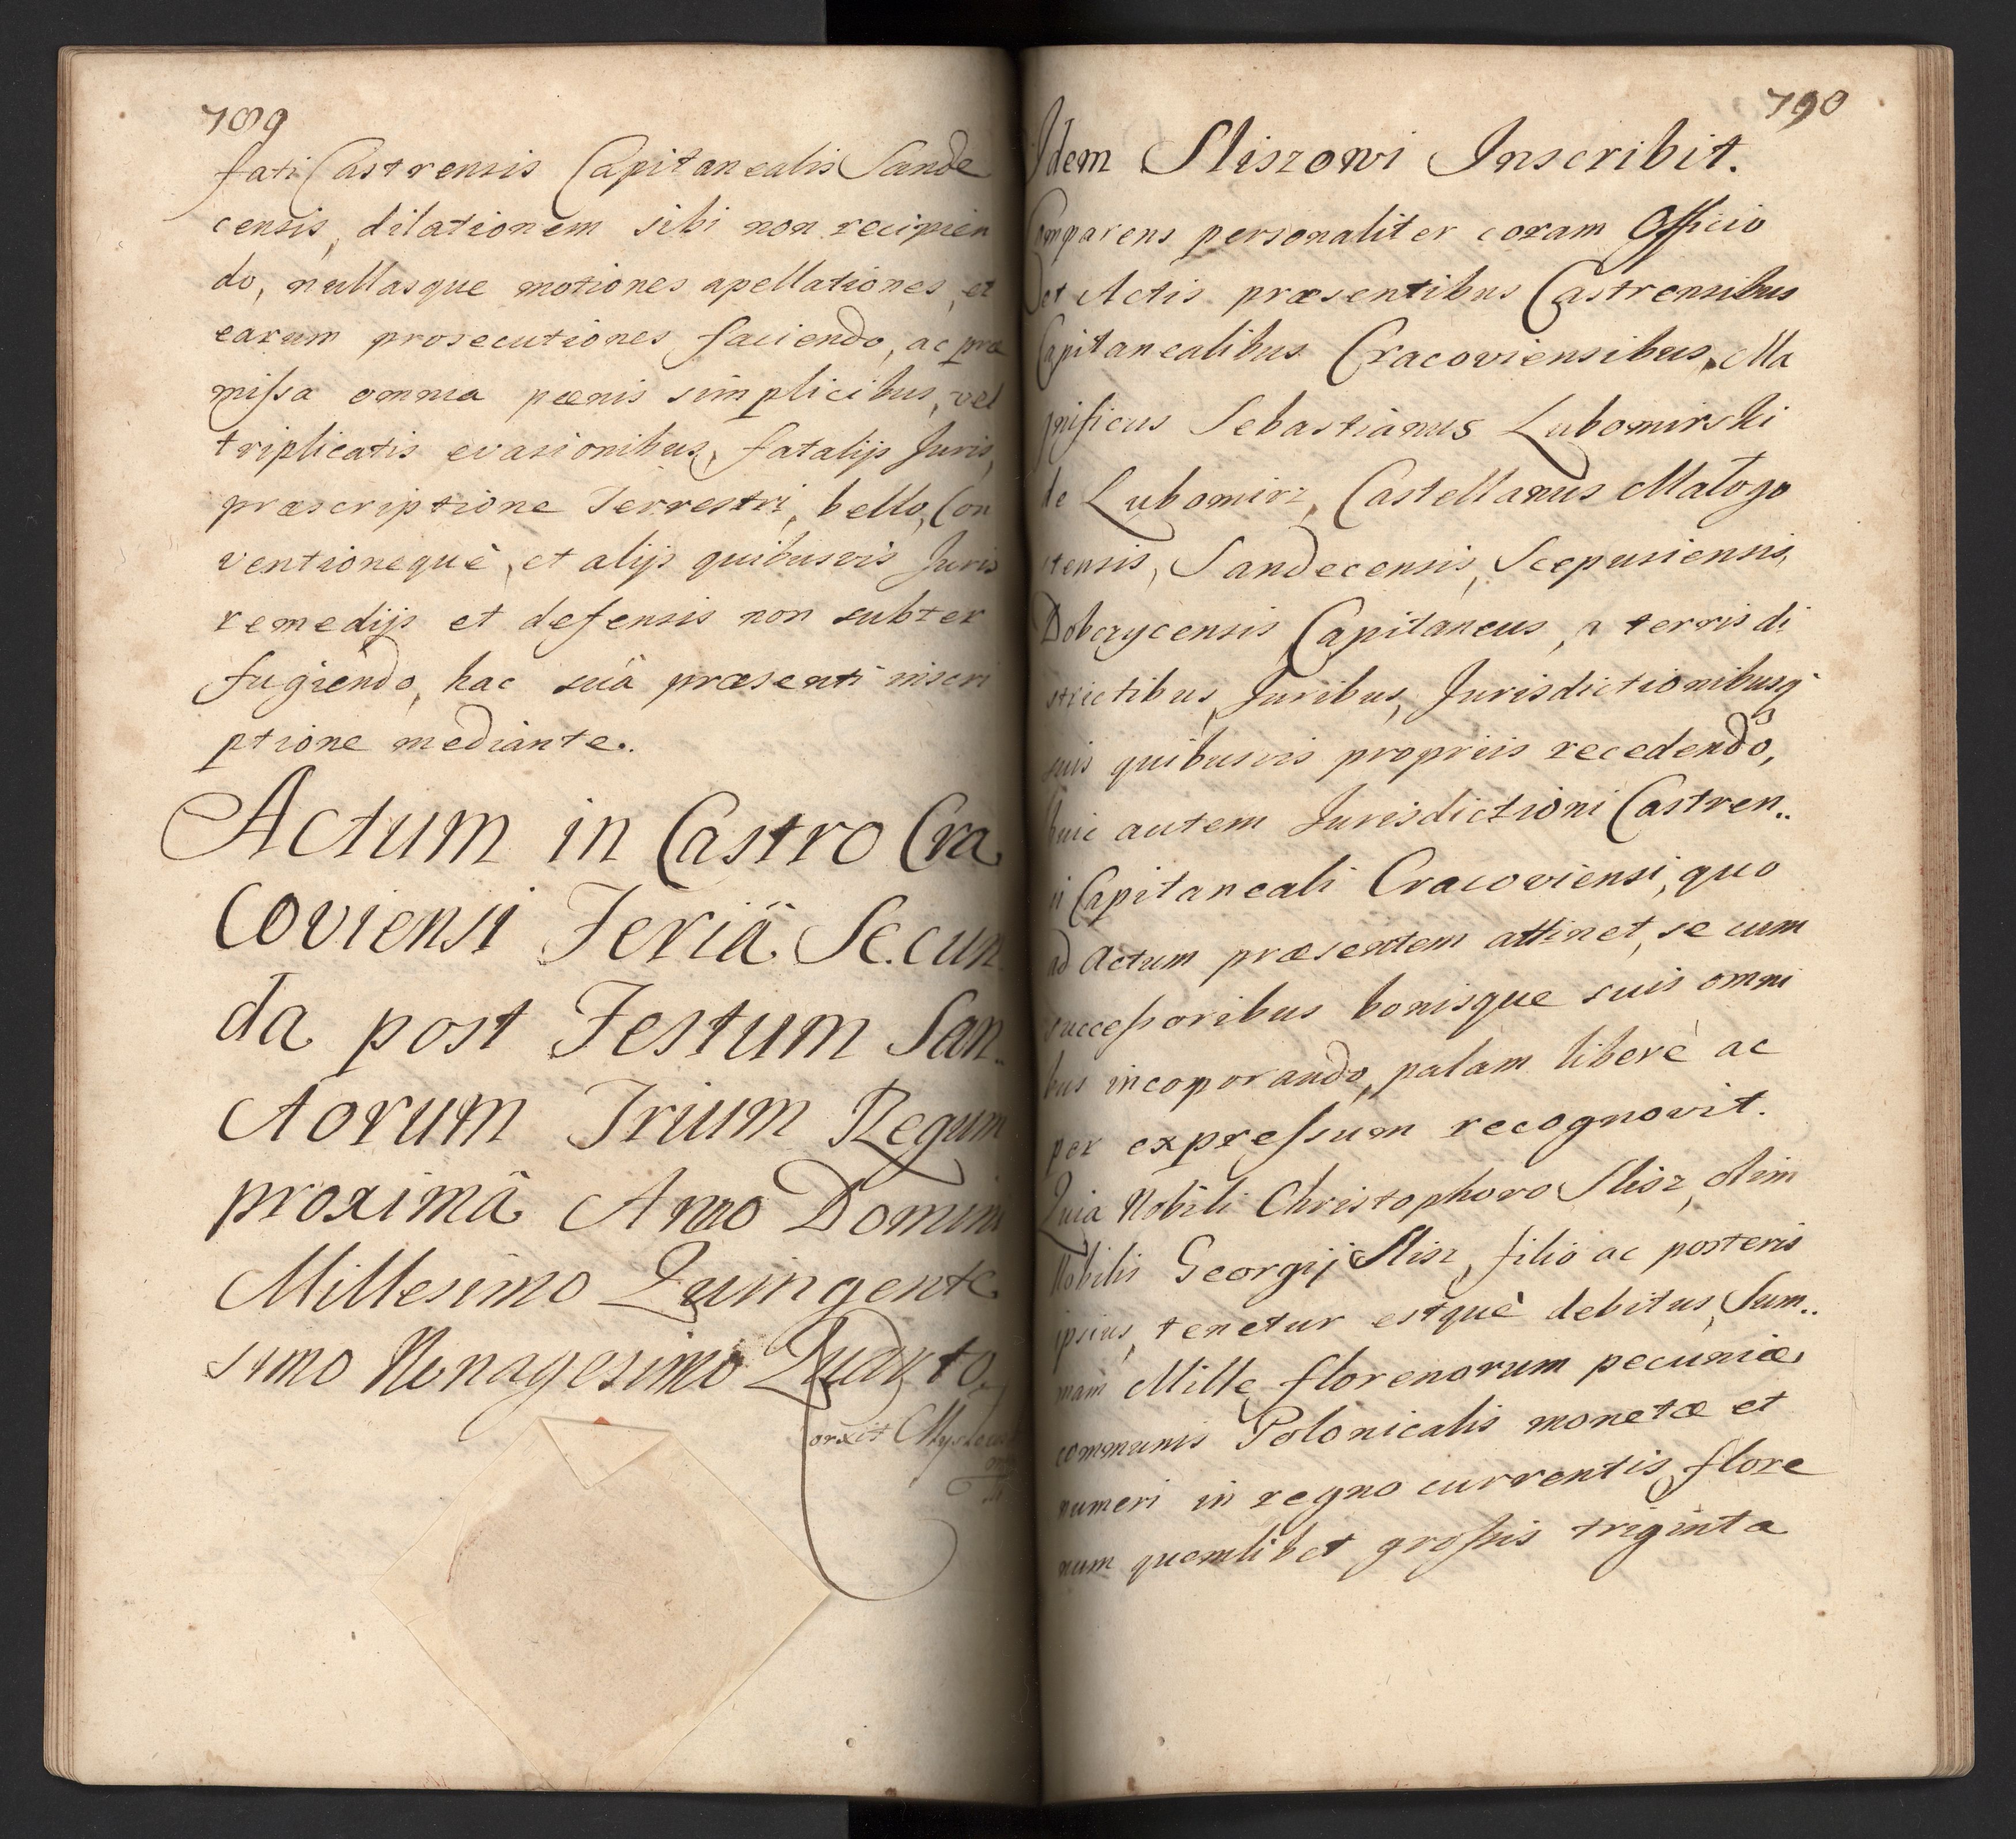 789
fati Castrensis Capitanealis Sande
censis, dilationem sibi non recipien
do, nullasque motiones apellationes, et
earum prosecutiones faciendo, ac præ
mifsa omnia pœnis simplicibus, vel
triplicatis evasionibus, fatalijs Juris,
præscriptione Terrestri, bello, Con
ventionequè, et alijs quibusvis Juris
remedijs et defensis non subter
fugiendo, hac suâ præsenti inscri
ptione mediante..
Actum in Castro Cra
coviensi Feriâ Secun
da post Festum San..
ctorum Trium Regum
proximâ Anno Domini
Millesimo Quingente
simo Nonagesimo Quarto.
790
Idem Sliszowi Inscribit.
Comparens personaliter coram Officio
et Actis præsentibus Castrensibus
Capitanealibus Cracoviensibus, Ma
gnificus Sebastianus Lubomirski
de Lubomirz, Castellanus Małogo
stensis, Sandecensis, Scepusiensis,
Dobczycensis Capitaneus, a terris di
strictibus, Juribus, Jurisdictionibusq
suis quibusvis propriis recedendo,
huic autem Jurisdictioni Castren..
si Capitaneali Cracoviensi, quo
ad Actum præsentem attinet, se cum
succefsoribus bonisque suis omni
bus incoporando, palam liberè ac
per exprefsum recognovit.
Quia Nobili Christophoro Slisz, olim
Nobilis Georgij Slisz, filio ac posteris
ipsius, tenetur estquè debitus, Sum..
mam Mille florenorum pecuniæ
communis Polonicalis monetæ et
numeri in regno currentis, flore
num quemlibet grofsis triginta